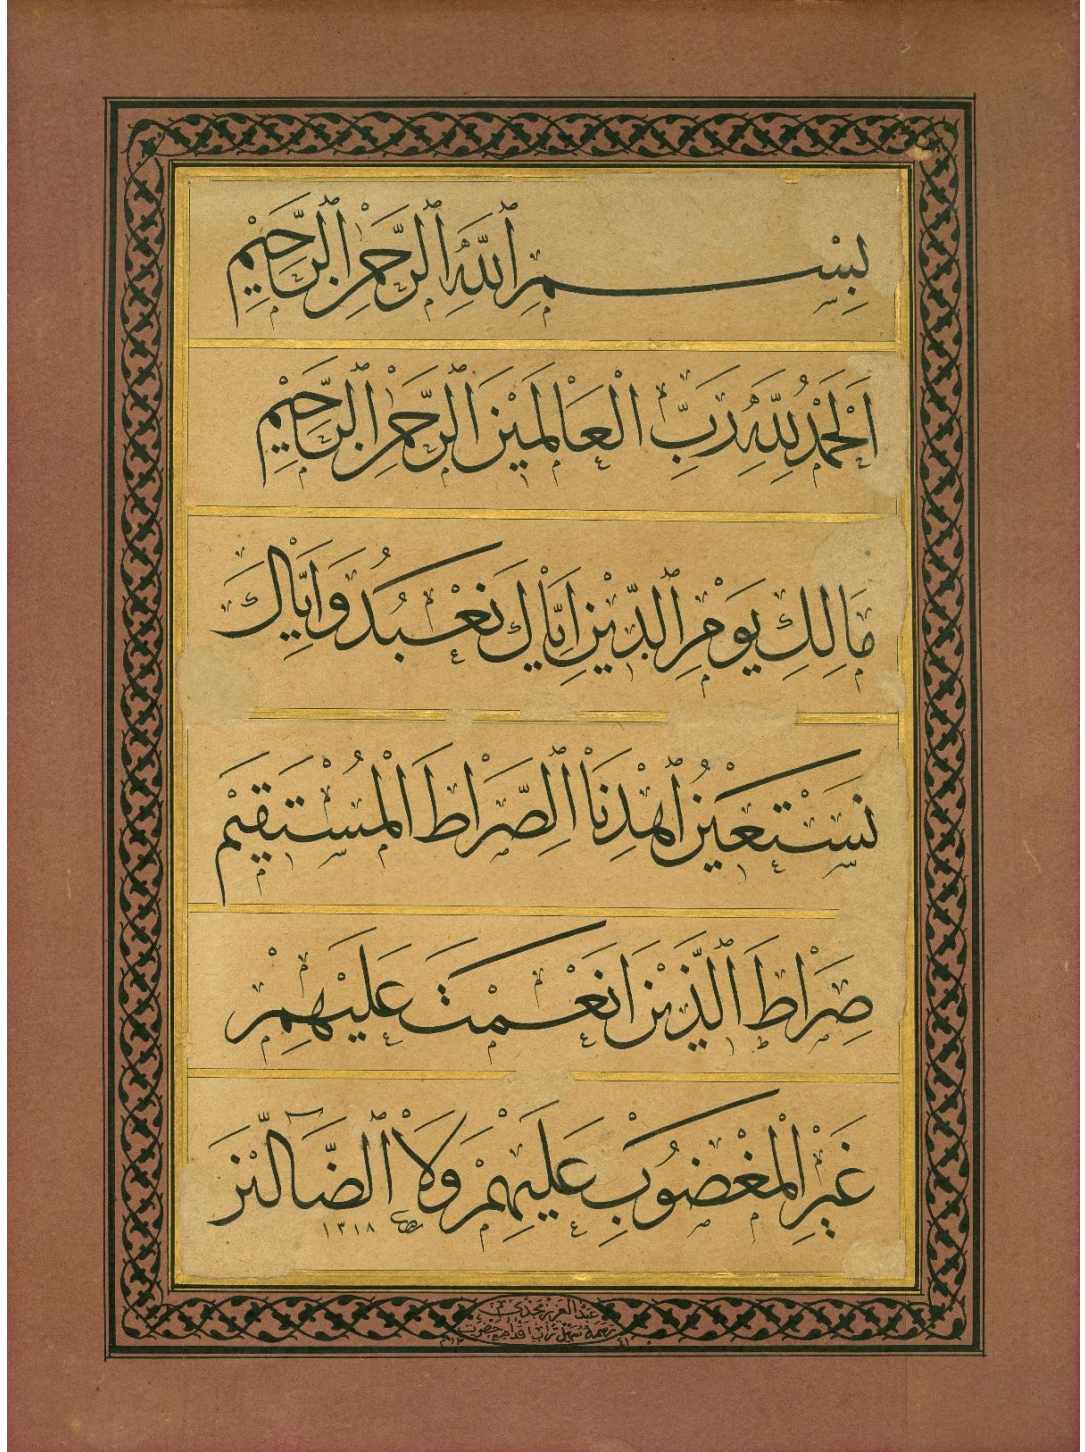 بِسْمِ ٱللَّهِ ٱلرَّحْمٰنِ ٱلرَّحِيْمِ
اَلْحَمْدُ لِلّٰهِ رَبِّ الْعَالَمِيْنَ ٱلرَّحْمٰنِ ٱلرَّحِيْمِ
مَالِكِ يَوْمِ ٱلدِّيْنِ اِيَّاكَ نَعْبُدُ وَاِيَّاكَ
نَسْتَعِيْنُ اِهْدِنَا ٱلصِّرَاطَ الْمُسْتَقِيْمَ
صِرَاطَ ٱلَّذِيْنَ اَنْعَمْتَ عَلَيْهِمْ
غَيْرِ الْمَغْضُوْبِ عَلَيْهِمْ وَلَا ٱلضَّآلِّيْنَ
١٣١٨
عبد العزيز مجدي